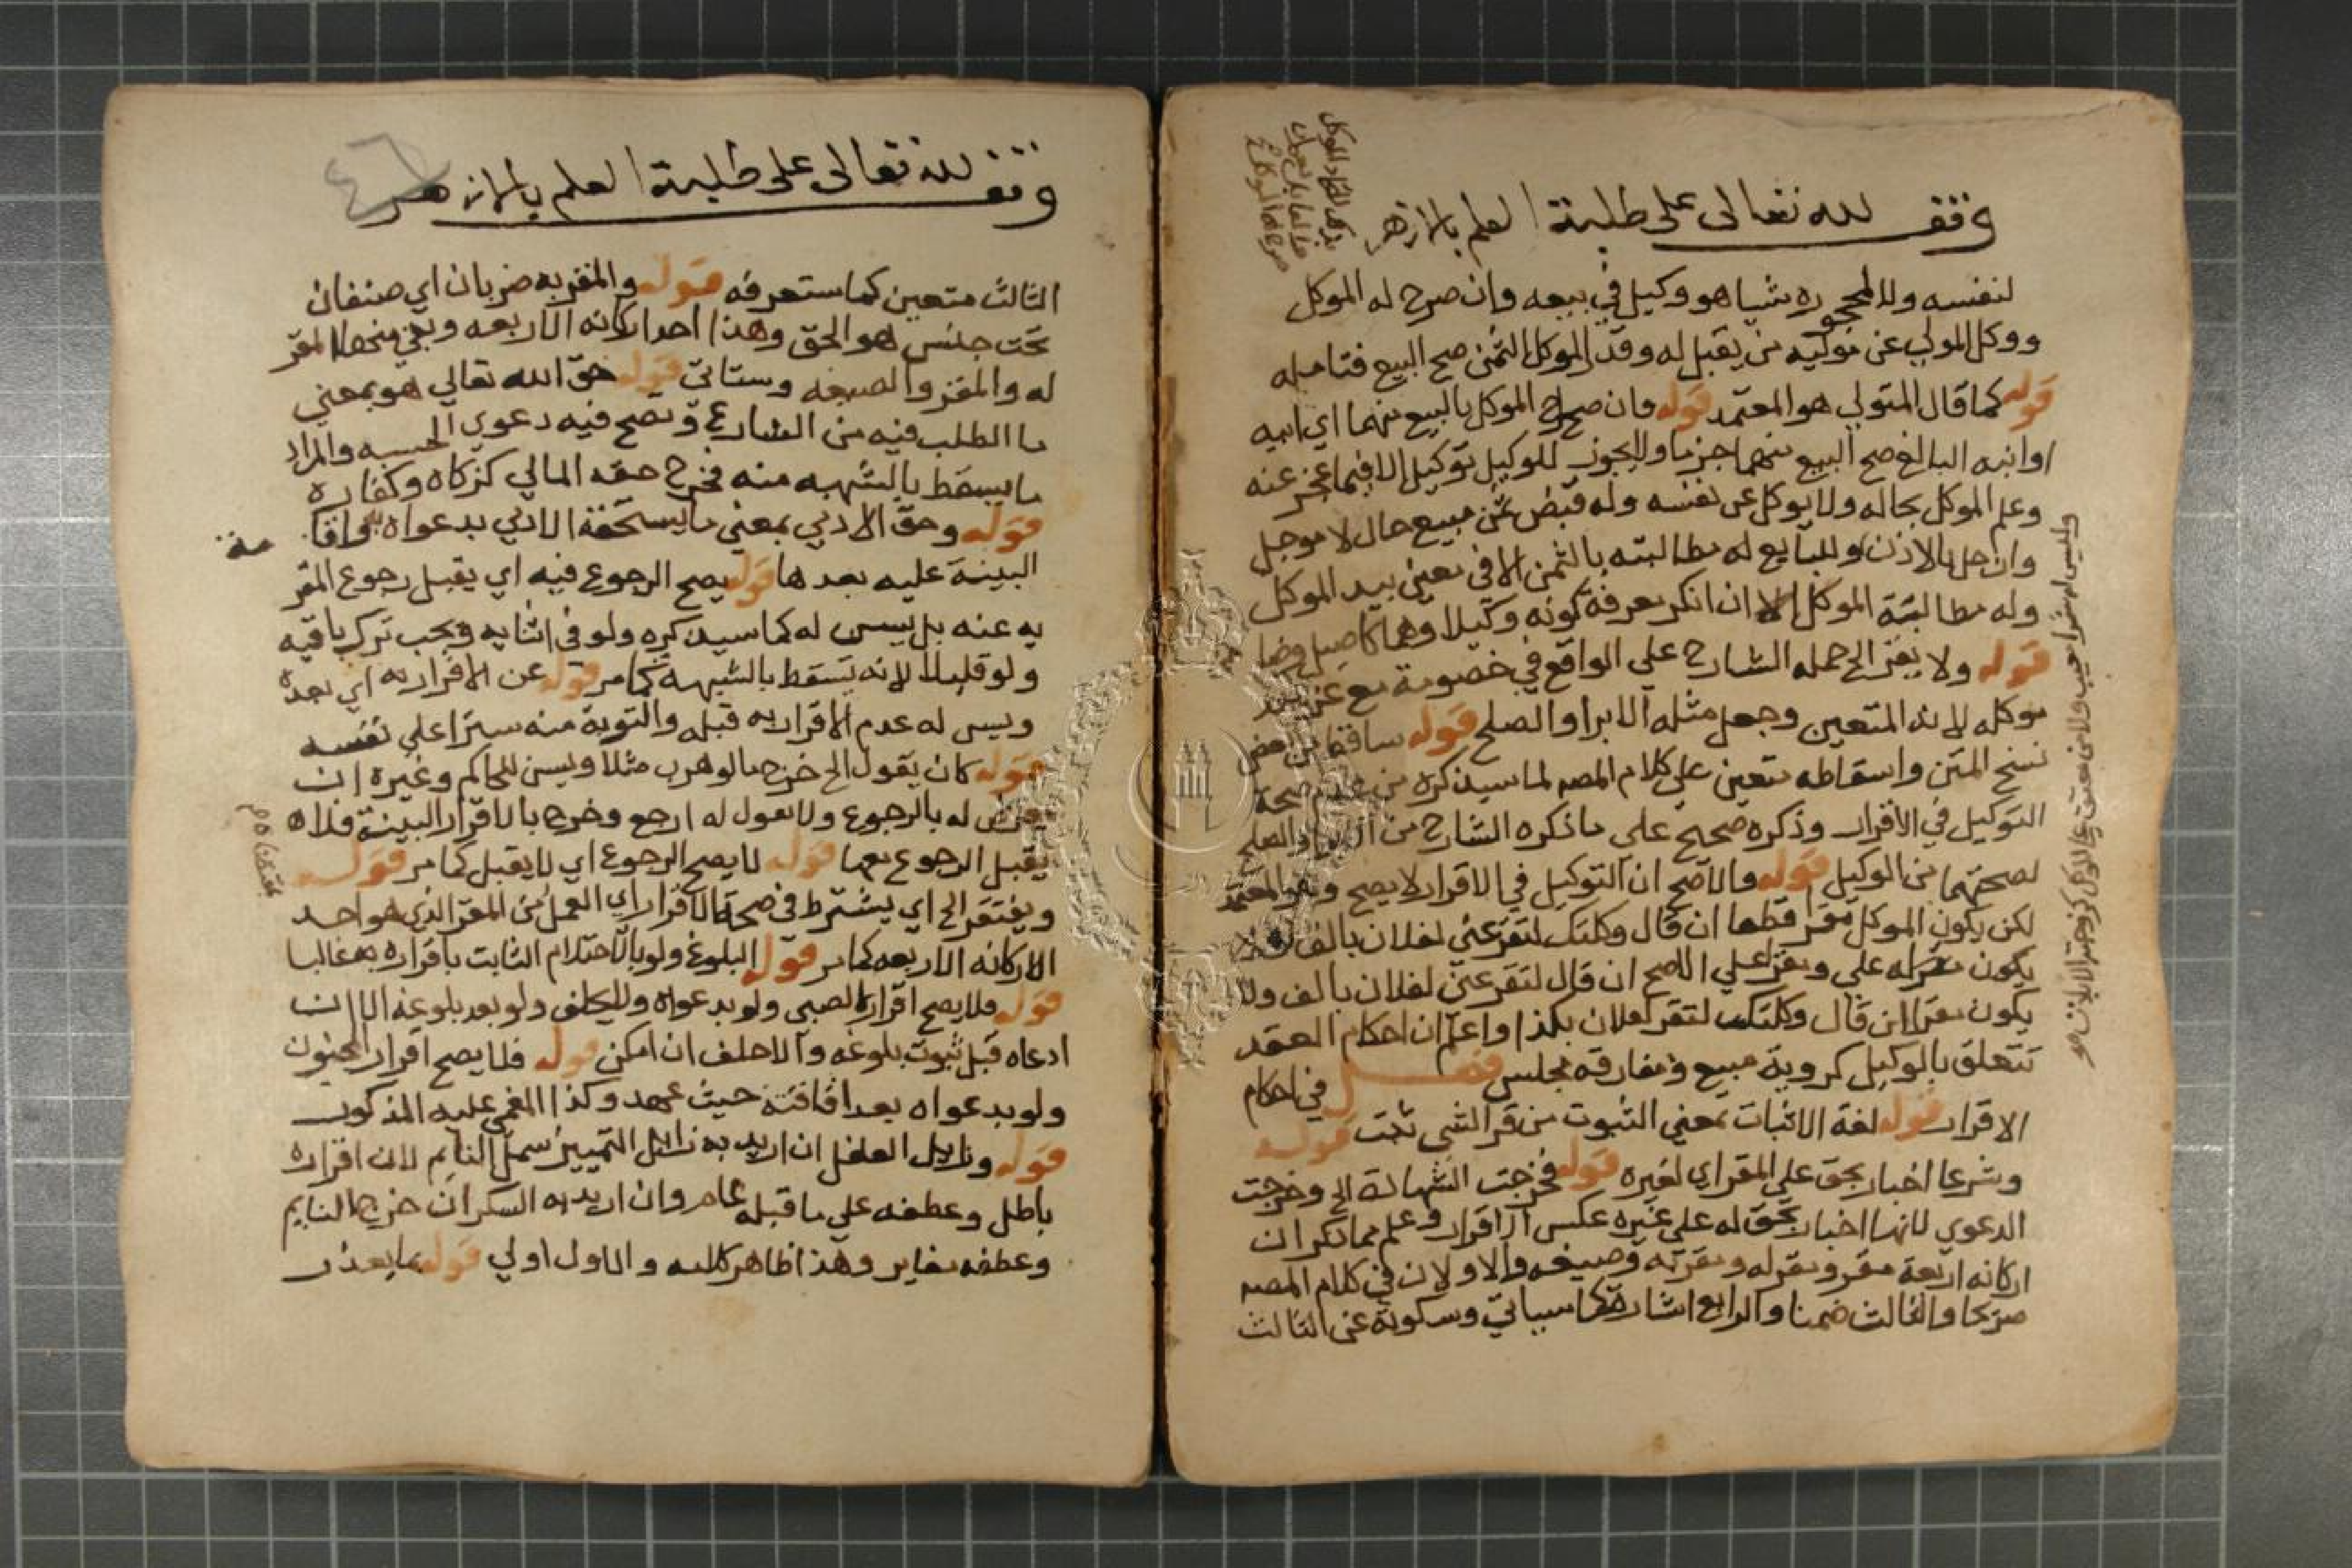 وقف لله تعالى على طلبة العلم بالازهر
لنفسه ولا لمحجوره شيا هو وكيل في بيعه وان صرح له الموكل
ووكل المولي عن موليه من يقبل له وقدر الموكل الثمن صح البيع فتامله
قوله كما قال المتولي هو المعتمد قوله وان صرح الموكل بالبيع منهما اي ابيه
او ابنه البالغ صح البيع منهما جزما ولا يجوز للوكيل توكيل الا فيما عجز عنه
وعلم الموكل بحاله ولا يوكل عن نفسه وله قبض ثمن مبيع حال لا موجل
وان حل بالاذن وللبايع له مطالبته بالثمن الا في معين بيد الموكل
وله مطالبة الموكل الا ان انكر معرفة كونه وكيلا وهما كاصيل وضامن
قوله ولا يقر الخ حمله الشارح علي الواقع في خصومة مع غريم
موكله لانه المتعين وجعل مثله الابرا والصلح قوله ساقط من بعض
نسخ المتن واسقاطه متعين علي كلام المصه لما سيذكره من عدم صحة
التوكيل في الاقرار وذكره صحيح علي ما ذكره الشارح من الابرا والصلح
لصحتهما من الوكيل قوله والاصح ان التوكيل في الاقرار لا يصح وهو المعتمد
لكن يكون الموكل مقرا قطعا ان قال وكلتك لتقر عني لفلان بالف له
يكون مقرا له علي ومقرا علي الاصح ان قال لتقر عني لفلان بالف ولا
يكون مقرا ان قال وكلتك لتقر لفلان بكذا واعلم ان احكام العقد
تتعلق بالوكيل كروية مبيع ومفارقة مجلس فصل في احكام
الاقرار قوله لغة الاثبات بمعني الثبوت من قر الشي ثبت قوله
وشرعا اخبار بحق علي المقر اي لغيره قوله فخرجت الشهادة الخ وخرجت
الدعوي لانها اخبار بحق له علي غيره عكس الاقرار وعلم مما ذكر ان
اركانه اربعة مقر ومقر له ومقر به وصيغه والاولان في كلام المصه
صريحا والثالث ضمنا والرابع اشارة كما سياتي وسكوته عن الثالث
وقف لله تعالى على طلبة العلم بالازهر
الثالث متعين كما ستعرفه قوله والمقر به ضربان اي صنفان
تحت جنس هو الحق وهذا احد اركانه الاربعه وبقي منها المقر
له والمقر والصيغه وستاتي قوله حق الله تعالي هو بمعني
ما الطلب فيه من الشارع وتصح فيه دعوي الحسبه والمراد
ما يسقط بالشبهه منه فخرج حقه المالي كزكاه وكفاره
قوله وحق الادمي بمعني ما يستحقه الادمي بدعواه به واقامة
البينة عليه بعدها قوله يصح الرجوع فيه اي يقبل رجوع المقر
به عنه بل يسن له كما سيذكره ولو في اثنايه ويجب ترك باقيه
ولو قليلا لانه يسقط بالشبهة كما مر قوله عن الاقرار به اي بعده
ويسن له عدم الاقرار به قبله والتوبة منه سترا علي نفسه
قوله كان يقول الخ خرج ما لو هرب مثلا ويسن للحاكم وغيره ان
يعرض له بالرجوع ولا يقول له ارجع وخرج بالاقرار البينة فلا
يقبل الرجوع معها قوله لا يصح الرجوع اي لا يقبل كما مر قوله
ويفتقر الخ اي يشترط في صحة الاقرار اي العمل من المقر الذي هو احد
اركانه الاربعه كما مر قوله البلوغ ولو بالاحتلام الثابت باقراره به غالبا
قوله فلا يصح اقرار الصبي ولو بدعواه ولا يحلف ولو بعد بلوغه الا ان
ادعاه قبل ثبوت بلوغه والا حلف ان امكن قوله فلا يصح اقرار المجنون
ولو بدعواه بعد افاقته حيث عهد وكذا المغمي عليه المذكور
قوله وزايل العقل ان اريد به زايل التمييز شمل النايم لان اقراره
باطل وعطفه علي ما قبله عام وان اريد به السكران خرج النايم
وعطفه مغاير وهذا ظاهر كلامه والاول اولي قوله بما يعذر